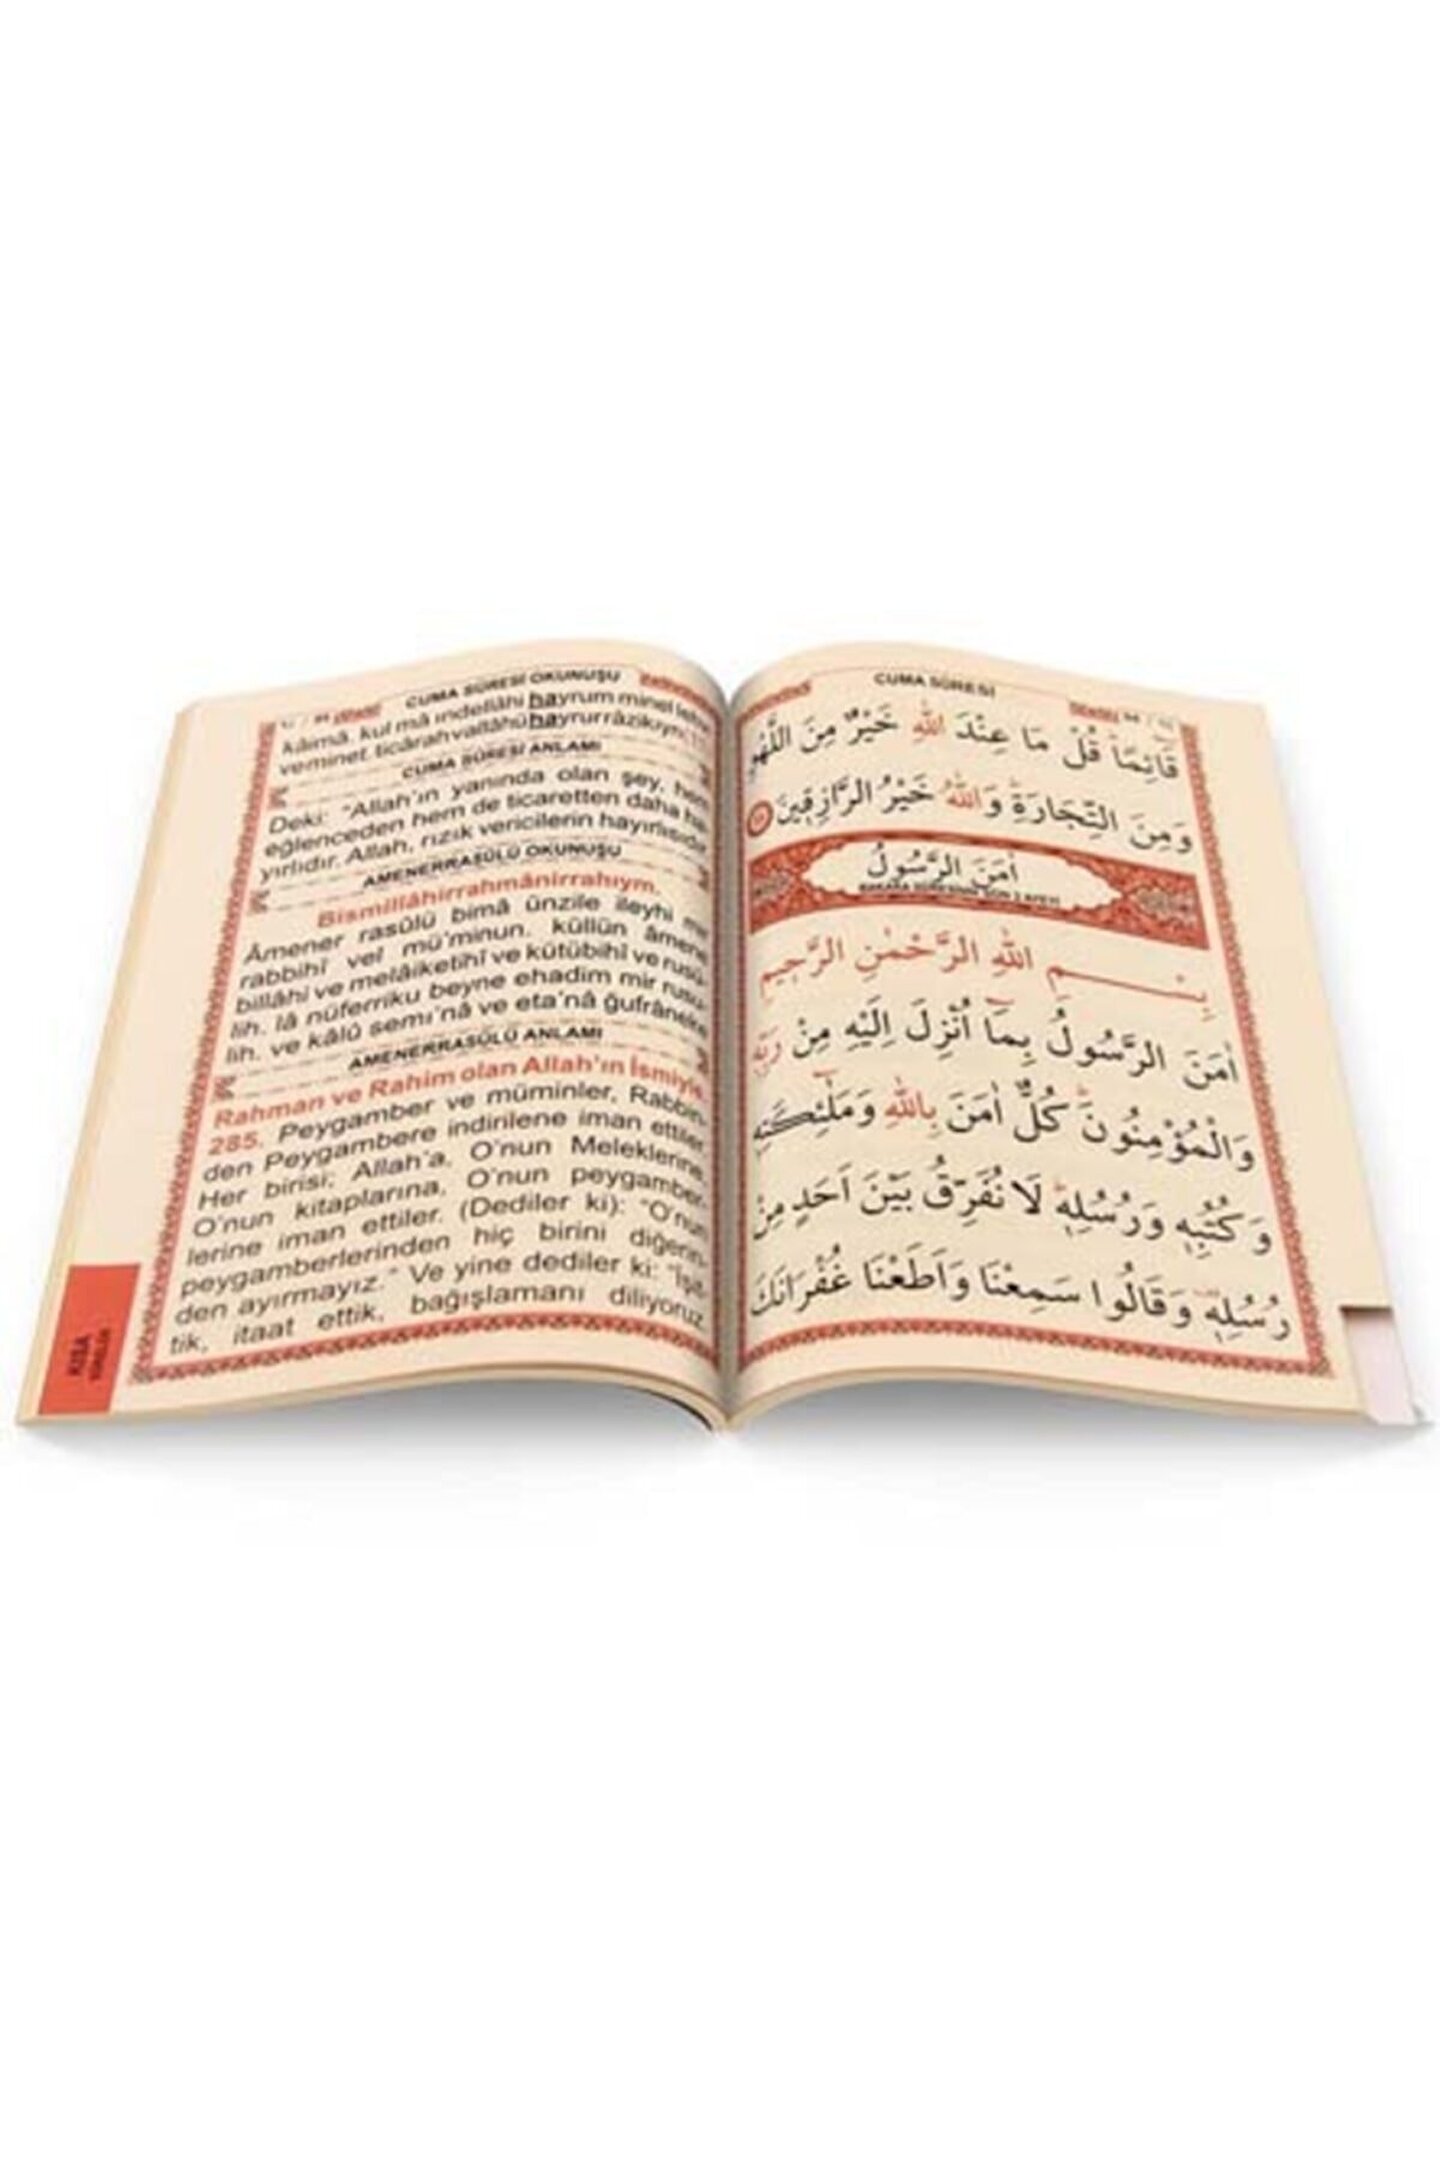 CUMA SÛRESİ OKUNUŞU
kâimâ. kul mâ ındellâhi hayrum minel lehvi
veminet. ticârah vallâhü hayrurrâzikıyn.
CUMA SÛRESİ ANLAMI
Deki: "Allah'ın yanında olan şey, hem
eğlenceden hem de ticaretten daha ha-
yırlıdır. Allah, rızık vericilerin hayırlısıdır.
AMENERRASÛLÜ OKUNUŞU
Bismillâhirrahmânirrahıym.
Âmener rasûlü bimâ ünzile ileyhi mir
rabbihî vel mü'minun. küllün âmene
billâhi ve melâiketihî ve kütübihî ve rusü-
lih. lâ nüferriku beyne ehadim mir rusu-
lih. ve kâlû semı'nâ ve eta'nâ ğufrâneke
AMENERRASÛLÜ ANLAMI
Rahman ve Rahim olan Allah'ın İsmiyle
285. Peygamber ve müminler, Rabbin-
den Peygambere indirilene iman ettiler.
Her birisi; Allah'a, O'nun Meleklerine,
O'nun kitaplarına, O'nun peygamber-
lerine iman ettiler. (Dediler ki): "O'nun
peygamberlerinden hiç birini diğerin-
den ayırmayız." Ve yine dediler ki: "İşit-
tik, itaat ettik, bağışlamanı diliyoruz
KISA
CUMA SÛRESİ
قَٓائِمًاۜ قُلْ مَا عِنْدَ اللّٰهِ خَيْرٌ مِنَ اللَّهْوِ
وَمِنَ التِّجَارَةِۜ وَاللّٰهُ خَيْرُ الرَّازِق۪ينَ
اٰمَنَ الرَّسُولُ
BAKARA SÛRESİNİN SON 2 AYETİ
بِسْمِ اللّٰهِ الرَّحْمٰنِ الرَّحِيمِ
اٰمَنَ الرَّسُولُ بِمَٓا اُنْزِلَ اِلَيْهِ مِنْ رَبِّه۪
وَالْمُؤْمِنُونَۜ كُلٌّ اٰمَنَ بِاللّٰهِ وَمَلٰٓئِكَتِه۪
وَكُتُبِه۪ وَرُسُلِه۪ۜ لَا نُفَرِّقُ بَيْنَ اَحَدٍ مِنْ
رُسُلِه۪ۜ وَقَالُوا سَمِعْنَا وَاَطَعْنَا غُفْرَانَكَ